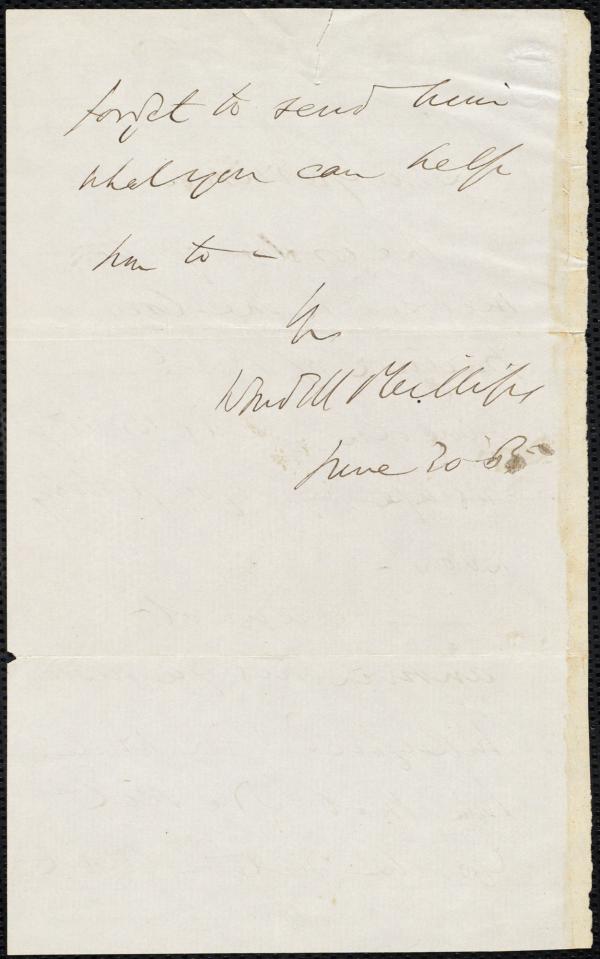 forget to send him
what you can help
him to –
Yrs
Wendell Phillips
June 20 65